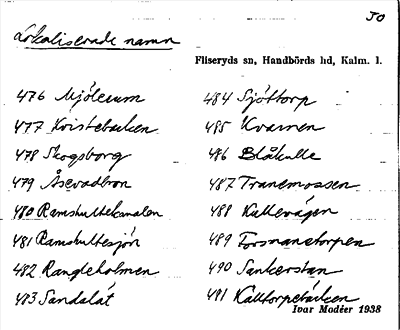 50
Lokaliserade namn
Fliseryds sn, Handbörds hd, Kalm. l.
476 Mjölerum
477 Kvistebacken
478 Skogsborg
479 Åsevadbron
480 Ramshultekanalen
481 Ramshultesjön
482 Rangleholmen
483 Sandalåt
484 Sjöttorp
485 Kvarnen
486 Blåkulle
487 Tranemossen
488 Kullevägen
489 Torsnanetorpen
490 Sankerstan
491 Kalltorpebäcken
Ivar Modéer 1938